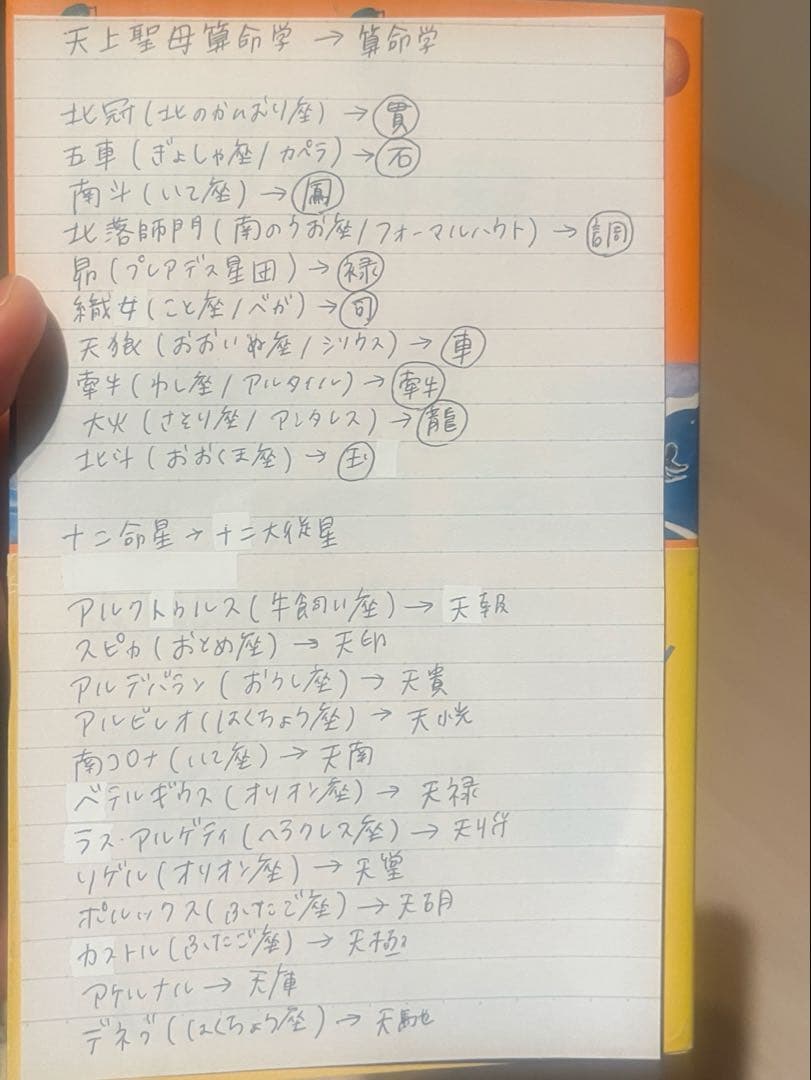 天上聖母算命学 → 算命学
北冠(北のかんむり座) → 貫
五車(ぎょしゃ座/カペラ) → 石
南斗(いて座) → 鳳
北落師門(南のうお座/フォーマルハウト) → 調
昴(プレアデス星団) → 禄
織女(こと座/ベガ) → 司
天狼(おおいぬ座/シリウス) → 車
牽牛(わし座/アルタイル) → 牽牛
大火(さそり座/アンタレス) → 龍
北斗(おおくま座) → 玉
十二命星 → 十二大従星
アルクトゥルス(牛飼い座) → 天報
スピカ(おとめ座) → 天印
アルデバラン(おうし座) → 天貴
アルビレオ(はくちょう座) → 天恍
南コロナ(いて座) → 天南
ベテルギウス(オリオン座) → 天禄
ラス・アルゲティ(ヘラクレス座) → 天将
リゲル(オリオン座) → 天堂
ポルックス(ふたご座) → 天胡
カストル(ふたご座) → 天極
アケルナル → 天庫
デネブ(はくちょう座) → 天馳